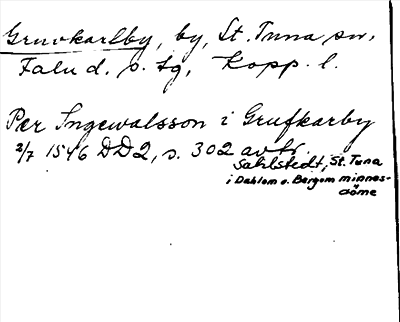 Gruvkarlby, by, St. Tuna sn,
Falu d. s. tg, Kopp. l.
Per Ingewalsson i Grufkarby
2/7 1546 DD2, s. 302 avtr.
Sahlstedt, St. Tuna
i Dahlom o. Bergom minnes-
döme